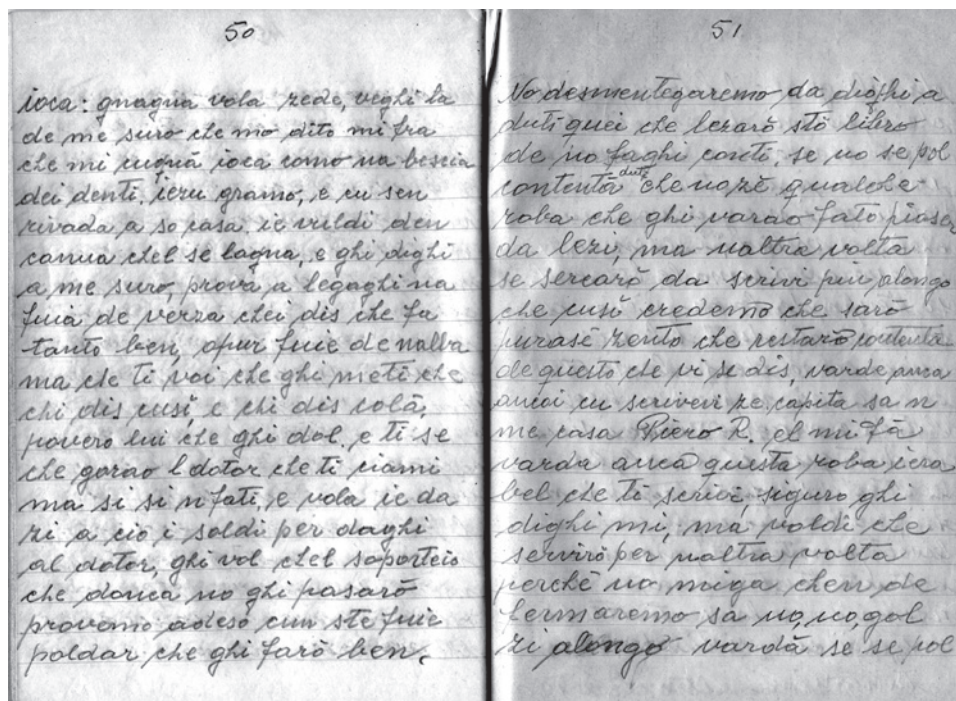 50
ioca: gnagna vola zede, veghi la
de me suro che mo dito mi fra
che mi cugnā ioca como na bescia
dei denti, ieru gramo, e cu sen
rivada a so casa ie vuldi den
canua chel se lagna, e ghi dighi
a me suro, prova a legaghi na
fuia de verza chei dis che fa
tanto ben, opur fuie de nalba
ma che ti voi che ghi meti che
chi dis cusi, e chi dis colā,
povero lui che ghi dol. e ti se
che gorao l dotor che ti ciami
ma si si n fati, e vola ie da
zi a cio i soldi per daghi
al dotor, ghi vol chel soporteio
che donca no ghi pasarō
provemo adeso cun ste fuie
poldar che ghi farō ben.
51
No desmentegaremo da dioghi a
duti quei che lezarō stō libro
de no faghi conti, se no se pol
contentā duti che no zē qualche
roba che ghi varao fato piaser
da lezi, ma naltra volta
se sercarō da scrivi piu alongo
che cusi credemo che sarō
purasē zento che restarō contenta
de questo che vi se dis, varde anca
ancoi cu scrivevi ze capita sa n
me casa Piero R. el mi fā
varda anca questa roba iera
bel che ti scrivi, siguro ghi
dighi mi, ma voldi che
servirō per naltra volta
perchē no miga chen de
fermaremo sa no, no, gol
zi alongo vardā se se pol